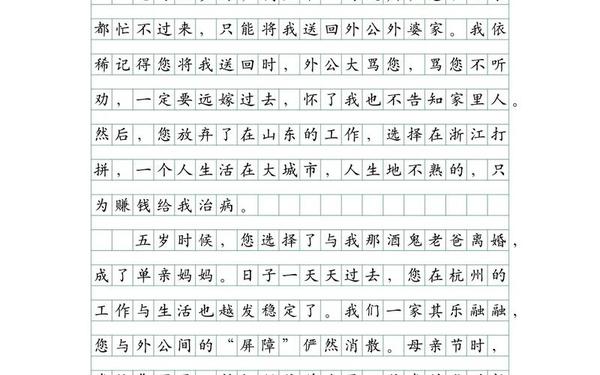 都忙不过来，只能将我送回外公外婆家。我依
稀记得您将我送回时，外公大骂您，骂您不听
劝，一定要远嫁过去，怀了我也不告知家里人。
然后，您放弃了在山东的工作，选择在浙江打
拼，一个人生活在大城市，人生地不熟的，只
为赚钱给我治病。
五岁时候，您选择了与我那酒鬼老爸离婚，
成了单亲妈妈。日子一天天过去，您在杭州的
工作与生活也越发稳定了。我们一家其乐融融，
您与外公间的“屏障”俨然消散。母亲节时，